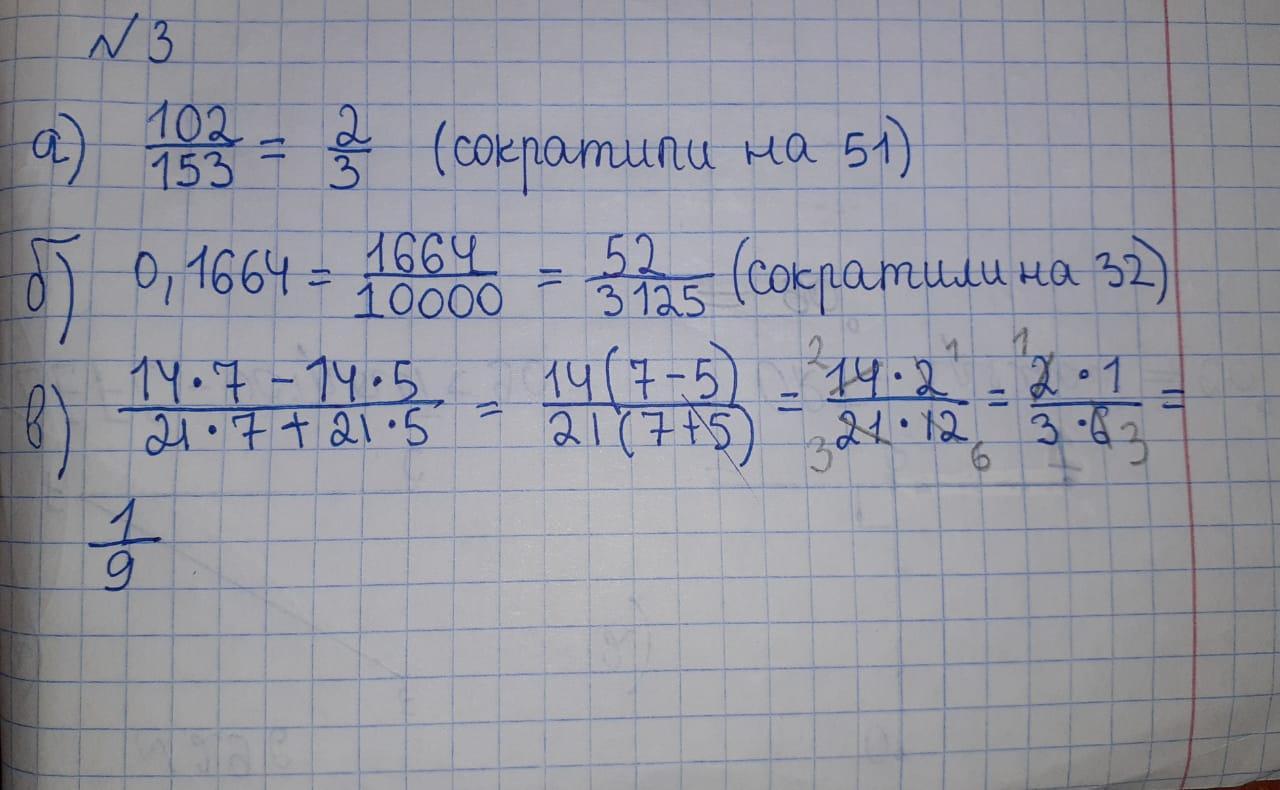 №3
а) 102/153 = 2/3 (сократили на 51)
б) 0,1664 = 1664/10000 = 52/3125 (сократили на 32)
в) (14·7 − 14·5)/(21·7 + 21·5) = 14(7−5)/21(7+5) = 2 14·2 1/3 21·12 6 = 1 2·1/3·6 3 =
1/9